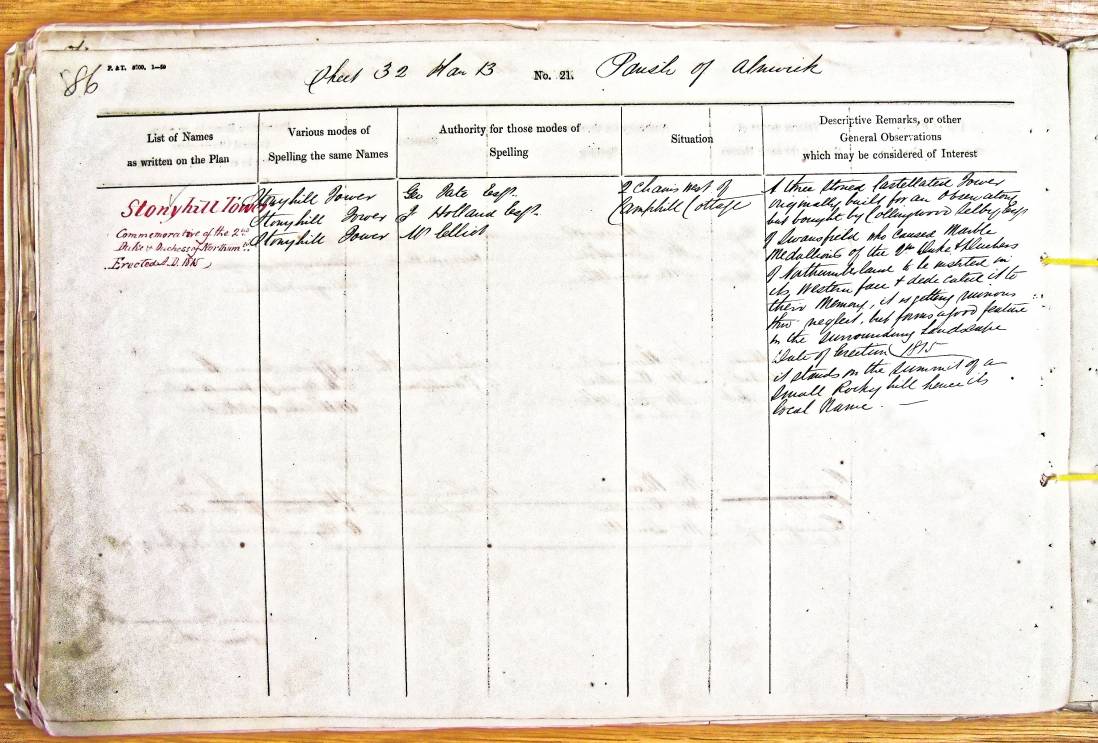 86
Sheet 32 Plan 13 No. 21. Parish of Alnwick
List of Names
as written on the Plan
Various modes of
Spelling the same Names
Authority for those modes of
Spelling
Situation
Descriptive Remarks, or other
General Observations
which may be considered of Interest
Stonyhill Tower
Commemorative of the 2nd
Duke & Duchess of Northumbd.
Erected A.D. 1815
Stonyhill Tower
Stonyhill Tower
Stonyhill Tower
Geo Tate Esqr.
F Holland Esqr.
Mr Elliot
2 Chains West of
Camphill Cottage
A three storied Castellated Tower
originally built for an Observatory
but bought by Collingwood Selby Esqr
of Swansfield who caused Marble
Medallions of the Duke & Duchess
of Northumberland to be inserted in
its Western face & dedicated it to
their Memory, it is getting ruinous
thro' neglect, but forms a good feature
in the surrounding Landscape
Date of Erection 1815
it stands on the summit of a
small Rocky hill hence its
local Name. —